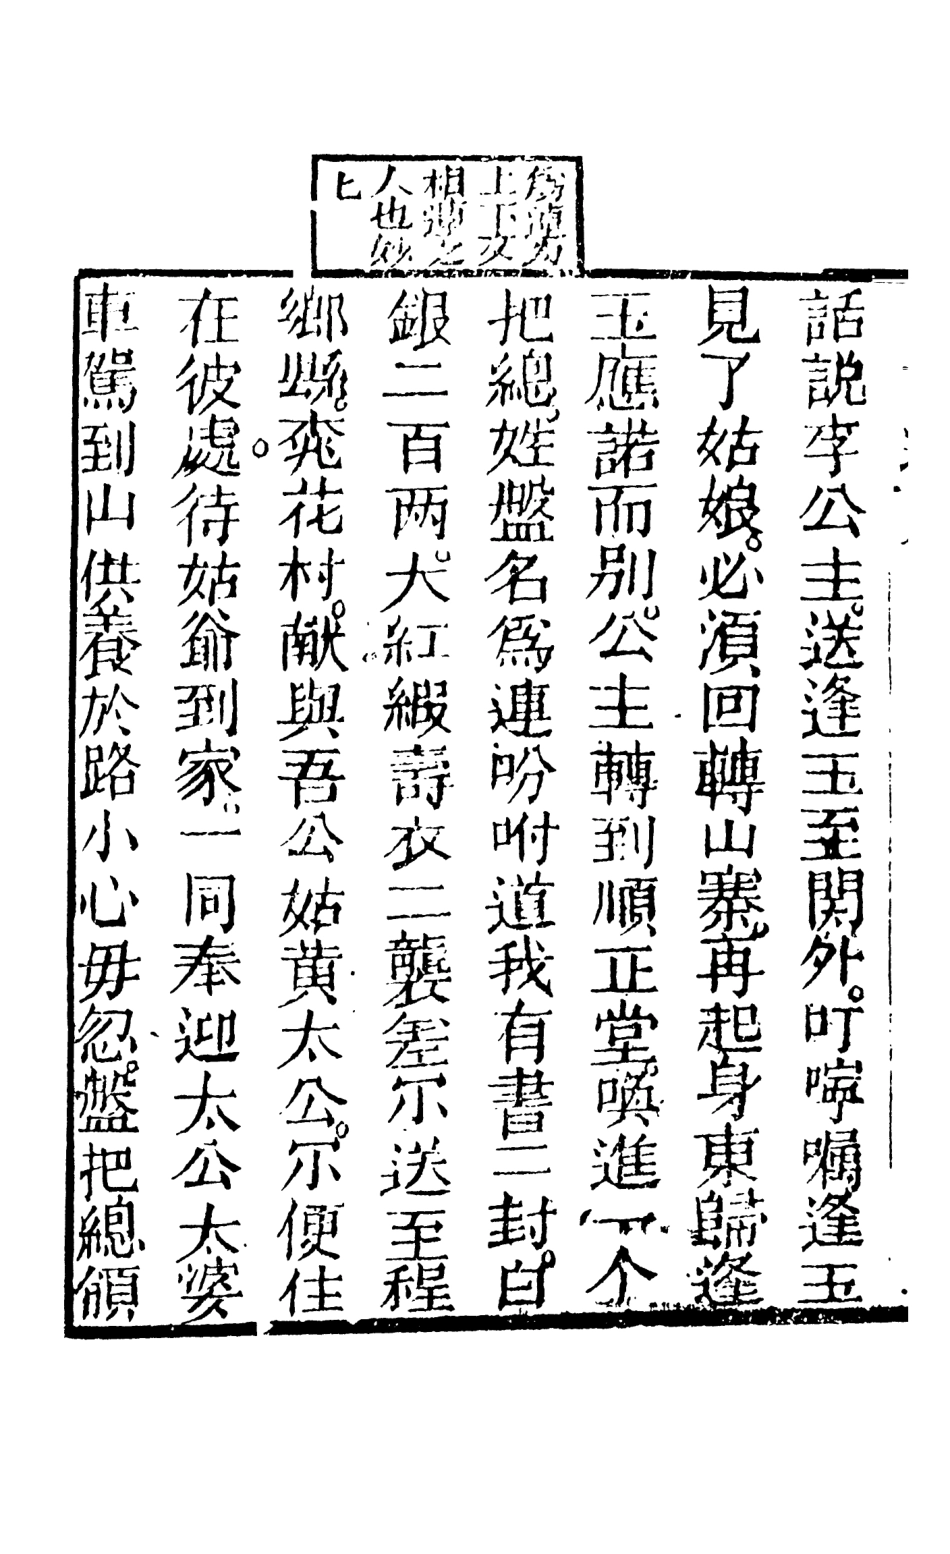 上下文
相連之
人也妙
匕
話説李公主。送逢玉至関外。叮嚀囑逢玉
見了姑娘。必湏回轉山寨。再起身東歸逢
玉應諾而别。公主轉到順正堂。喚進一个
把總。姓盤名爲連吩咐道我有書二封。白
銀二百两。大紅緞壽衣二襲差尔送至程
鄉縣。桃花村。献與吾公姑黄太公。尔便住
在彼處。待姑爺到家。一同奉迎太公太婆
車駕到山供養於路小心毋忽。盤把總領